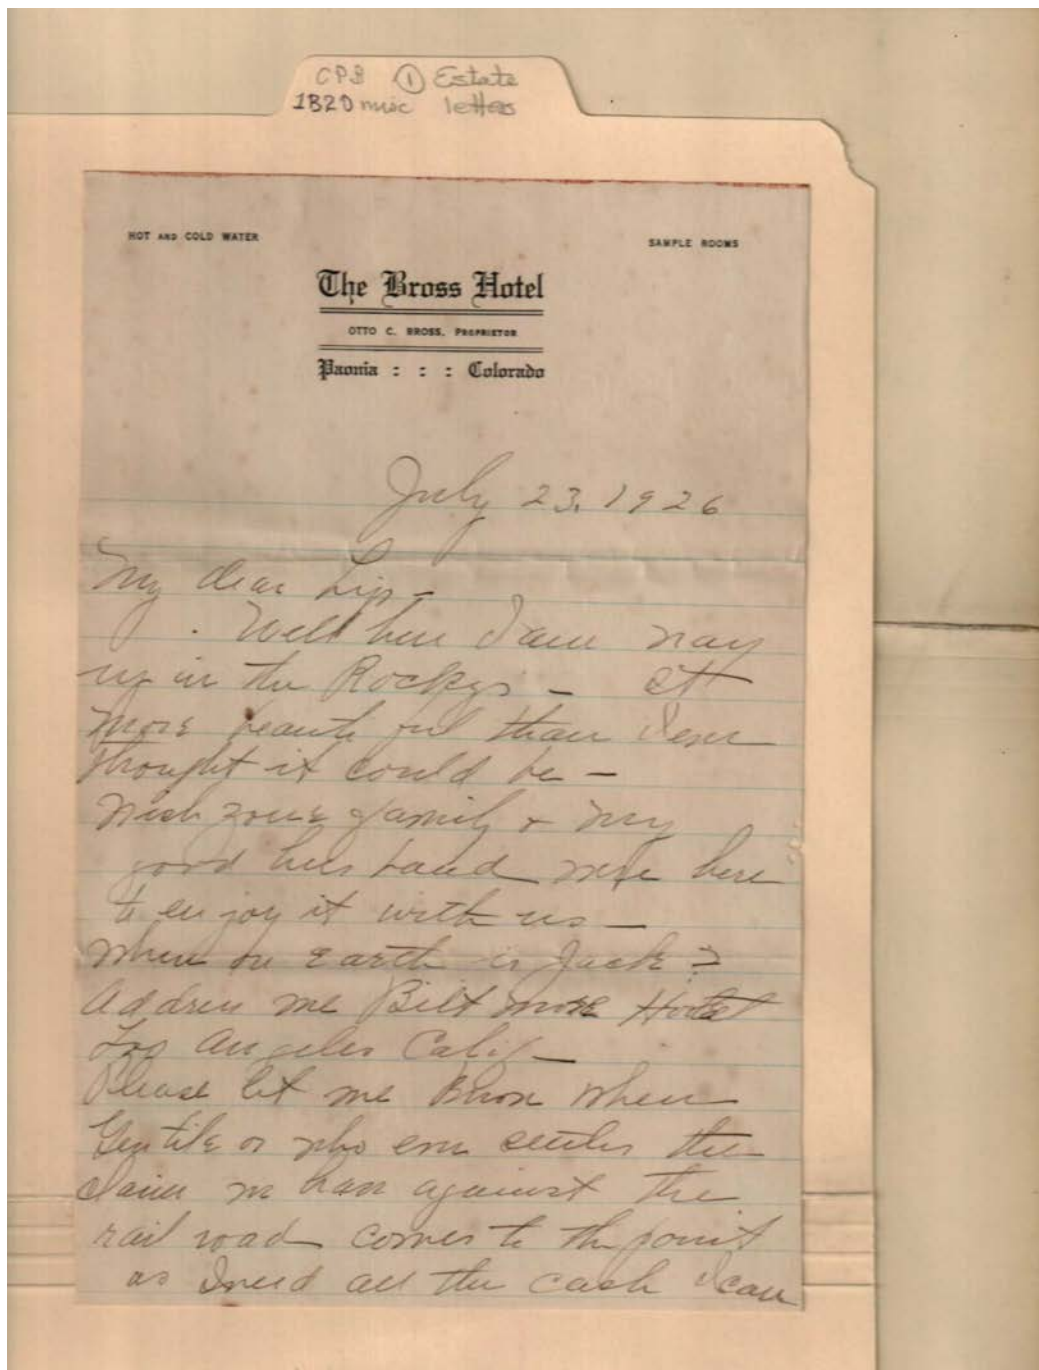 CPB ① Estate
1820 misc letters
HOT AND COLD WATER
SAMPLE ROOMS
The Bross Hotel
OTTO C. BROSS, PROPRIETOR
Paonia : : : Colorado
July 23. 1926
My dear Lip -
Well here I am way
up in the Rockys -
more beautiful than I ever
thought it could be -
Wish your family & my
good husband were here
to enjoy it with us -
Where on earth is Jack?
Address me Biltmore Hotel
Los Angeles Calif -
Please let me know when
Gentile or who ever settles the
claim we have against the
rail road comes to the point
as I need all the cash I can